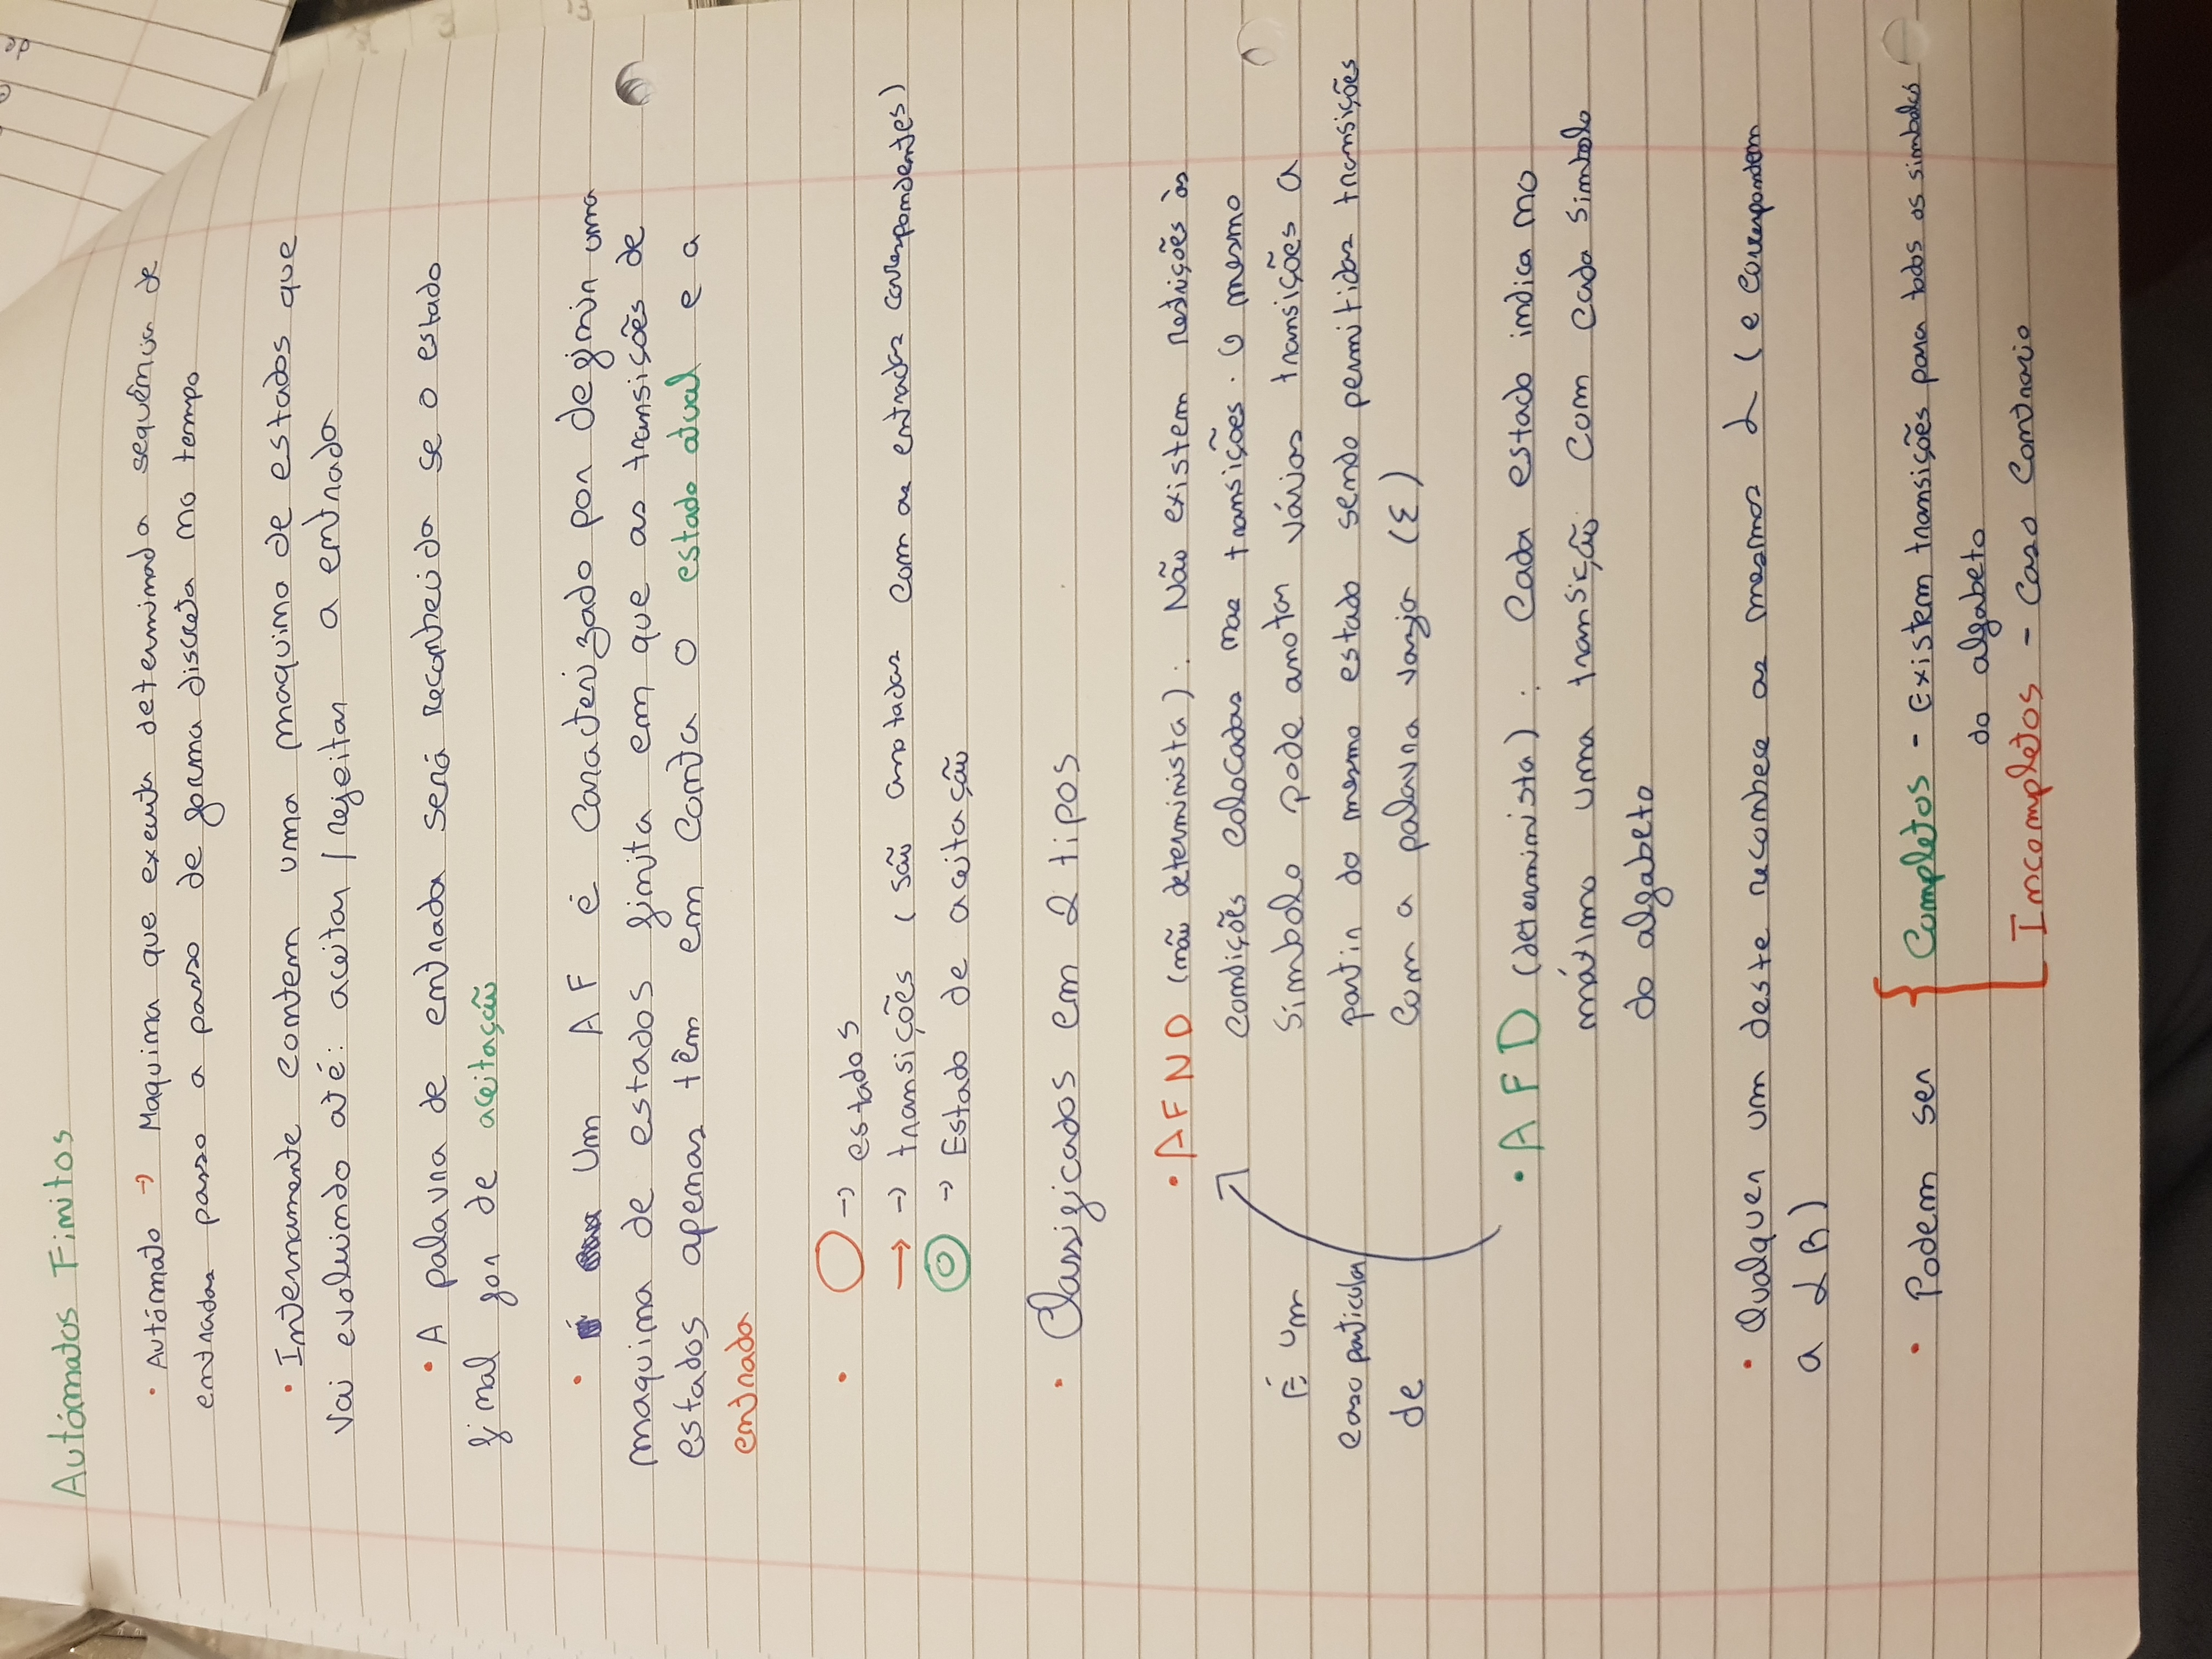 Autómatos Finitos
• Autómato → Maquina que executa determinada sequência de
entradas passo a passo de forma discreta no tempo
• Internamente contem uma maquina de estados que
vai evoluindo até: aceitar / rejeitar a entrada
• A palavra de entrada será reconhecida se o estado
final for de aceitação
• Um AF é caracterizado por definir uma
maquina de estados finita em que as transições de
estados apenas têm em conta o estado atual e a
entrada
• → estados
→ → transições (são anotadas com as entradas correspondentes)
→ Estado de aceitação
• Classificados em 2 tipos
• AFND (não determinista): Não existem restrições às
condições colocadas nas transições. O mesmo
simbolo pode anotar várias transições a
partir do mesmo estado sendo permitidas transições
com a palavra vazia (ε)
É um
caso particular
de
• AFD (determinista): Cada estado indica no
máximo uma transição com cada simbolo
do alfabeto
• Qualquer um deste reconhece as mesmas L (e correspondem
a LR)
• Podem ser { Completos - Existem transições para todos os simbolos
do alfabeto
Incompletos - caso contrario